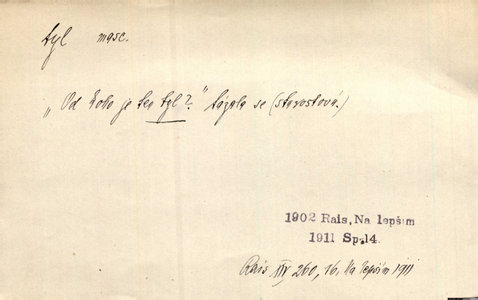 tyl masc.
„Od koho je ten tyl?." tázala se (starostová.)
1902 Rais, Na lepším
1911 Sp.14.
Rais XIV 260, 16. Na lepším 1911